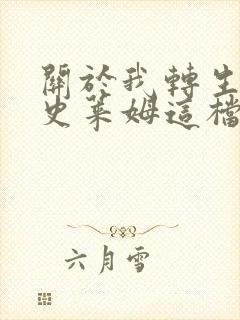 關於我轉生
史萊姆這檔
六月雪